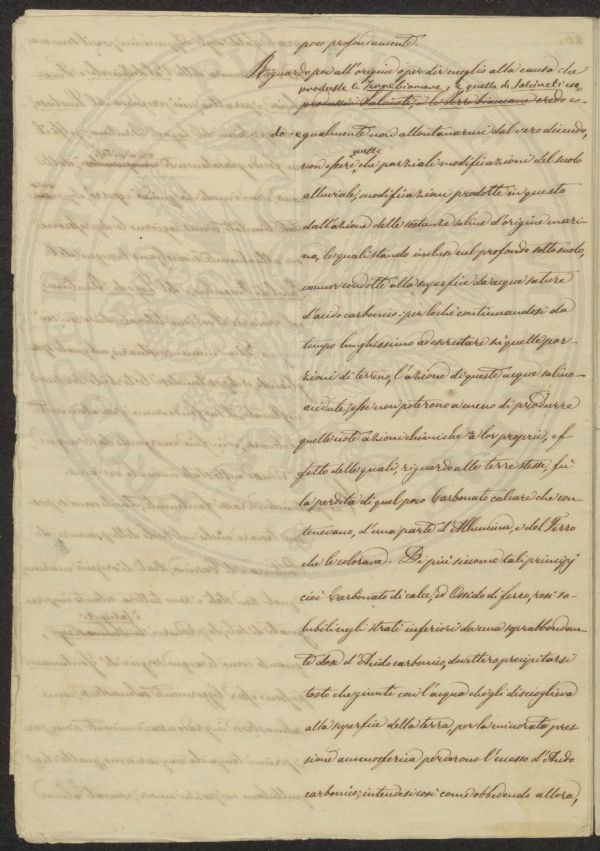 poco profondamente.
Riguardo poi all'origine o per dir meglio alla causa che
produsse le Terrebiancane, e quella de Salineti cre
produsse i Salineti, e le terre biancane credo e=
do egualmente non allontanarmi dal vero dicendo,
queste
non essere, che parziali modificazioni del suolo
alluviale, modificazioni prodotte in questo
dall'azione delle sostanze saline d'origine mari=
na, le quali stando incluse nel profondo sotto suolo,
cannor condotte alla superficie da acque sature
d'acido carbonico: per lo che continuandosi da
tempo lunghissimo ad esercitare si quelle por=
zioni di terreno, l'azione di queste acque salino=
acidule, esse non poterono a meno di produrre
quelle note azioni chimiche a lor proprie, ef=
fetto delle quali, riguardo alle terre stesse, fu
la perdita di quel poco Carbonato calcare che con=
tenevano, d'una parte d'Allumina, e del Ferro
che le colorava. Di più siccome tali principj
cioè Carbonato di calce, ed Ossido di ferro, resi so=
lubili negli strati inferiori da una soprabbondan=
te dose d'Acido carbonico, dovettero precipitarsi
tosto che giunti con l'acqua che gli discioglieva
alla superficie della terra, per la minorata pres=
sione atmosferica perderono l'eccesso d'Acido
carbonico; intendesi così come obbedendo allora,